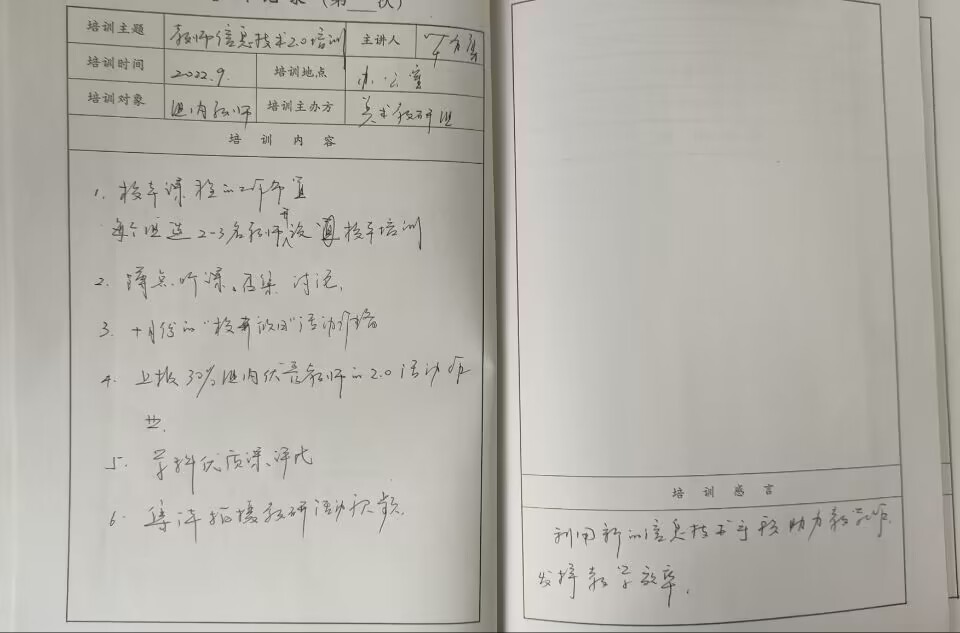 记录（第___次）
培训主题 教师信息技术2.0培训 主讲人
培训时间 2022.9. 培训地点 办公室
培训对象 组内教师 培训主办方 美术教研组
培训内容
1. 校本课程的工作布置
每个组选2-3名教师开设 校本培训
2. 蹲点听课、召集讨论.
3. 十月份的“校开放日”活动准备
4. 上报30%组内优秀教师的2.0活动作
业.
5. 学科优质课、评比
6. 集体拍摄教研活动视频.
培训感言
利用新的信息技术手段助力教学工作.
发挥教学效率.